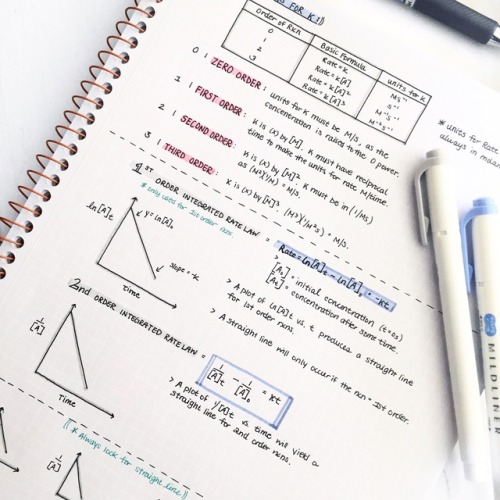 FOR K:
Order of Rxn
Basic Formula
units for K
0
Rate = k
Ms⁻¹
1
Rate = k[A]
s⁻¹
2
Rate = k[A]²
M⁻¹s⁻¹
3
Rate = k[A]³
M⁻²s⁻¹
* units for Rate
always in
0 | ZERO ORDER: units for K must be M/s, as the
concentration is raised to the 0 power.
1 | FIRST ORDER: K is (x) by [M]. K must have reciprocal
time to make the units for rate M/time.
2 | SECOND ORDER: K is (x) by [M]². K must be in (1/Ms)
as (M²)(1/Ms) = M/s.
3 | THIRD ORDER: K is (x) by [M]³. (M³)(1/M²s) = M/s.
1ST ORDER INTEGRATED RATE LAW =
* only used for 1st order rxns.
Rate = ln[A]t - ln[A]₀ = -kt
ln[A]t
y = ln[A]₀
slope = -k
Time
> [A₀] = initial concentration (t=0s)
[At] = concentration after some time.
> A plot of ln[A]t vs. t produces a straight line
for 1st order rxns.
> A straight line will only occur if the rxn = 1st order.
2nd ORDER INTEGRATED RATE LAW =
1/[A]
Time
1/[A]t - 1/[A]₀ = kt
> A plot of 1/[A]t vs time will yield a
straight line for 2nd order rxns.
|| * Always look for straight line ||
1/[A]
MILDLINER